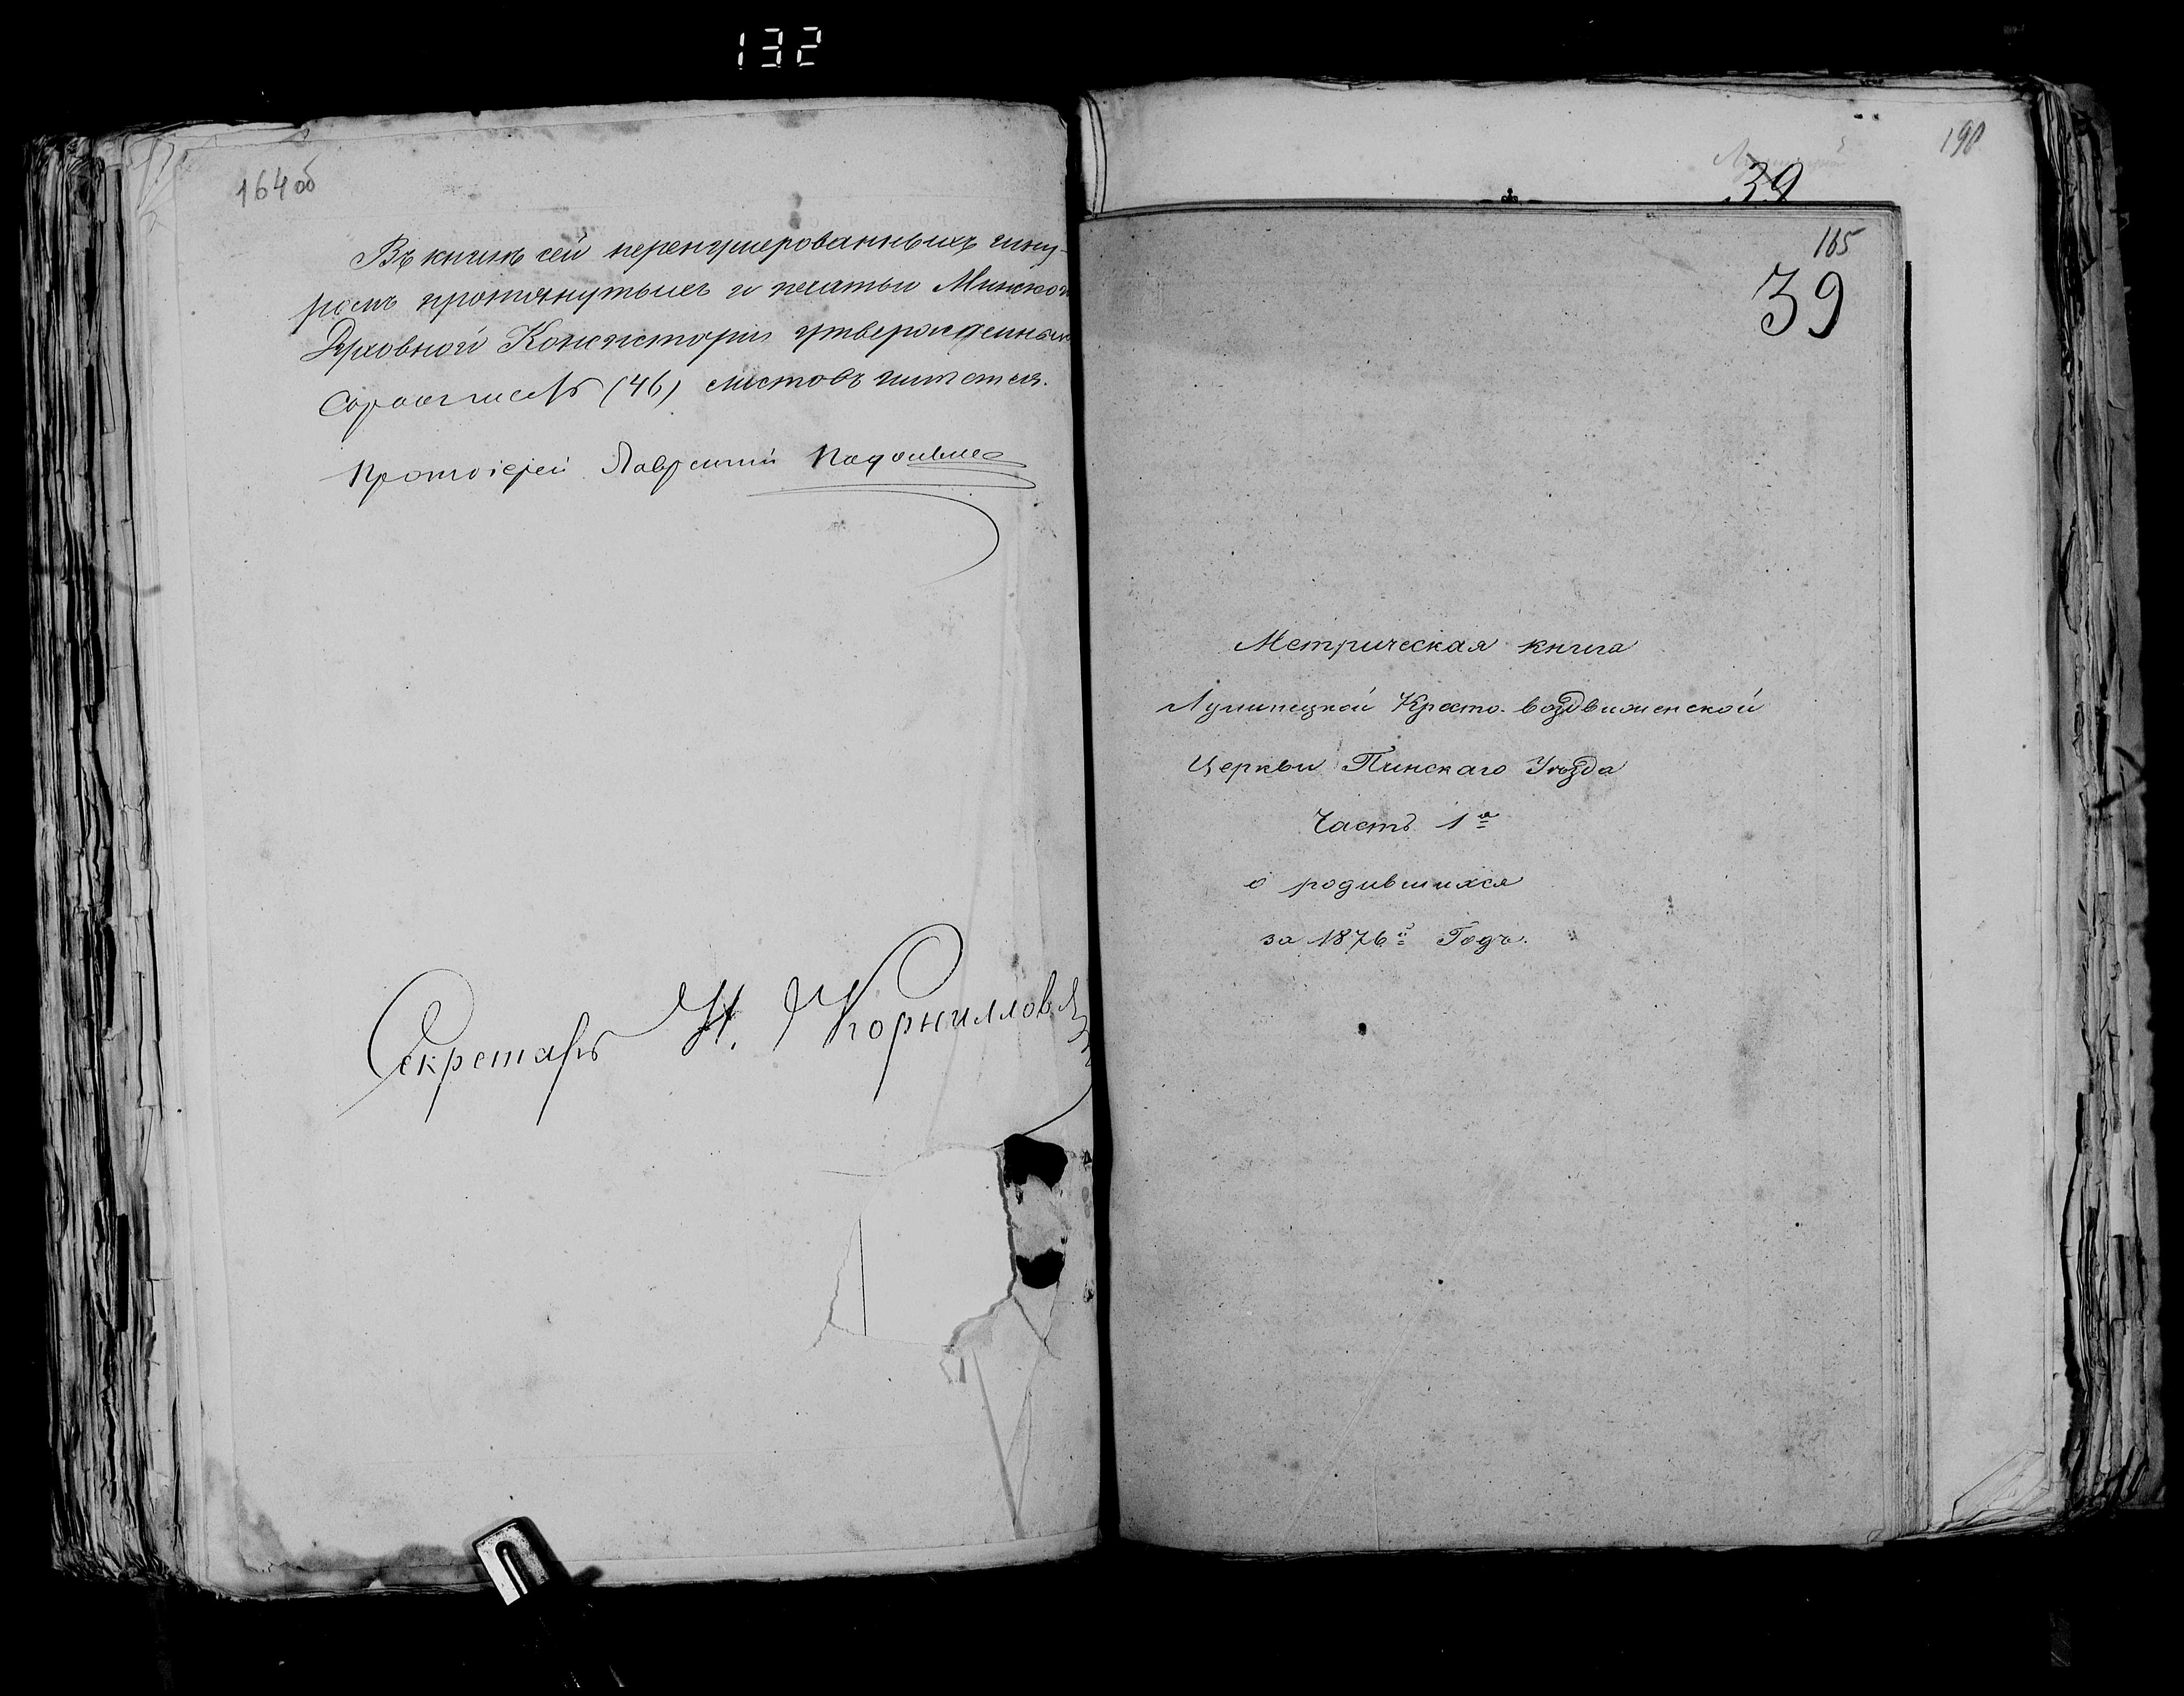 132
164 об
Въ книгѣ сей перенумерованныхъ шну-
ромъ протянутыхъ и печатью Минской
Духовной Консисторіи утвержденныхъ
сорокъ шесть (46) листовъ считается.
Протоіерей Лаврентій
Секретарь Н. Корниллов
198
39
165
39
Метрическая книга
Лунинецкой Кресто-воздвиженской
Церкви Пинскаго Уѣзда
Часть 1ᵃ
о родившихся
за 1876й Годъ.